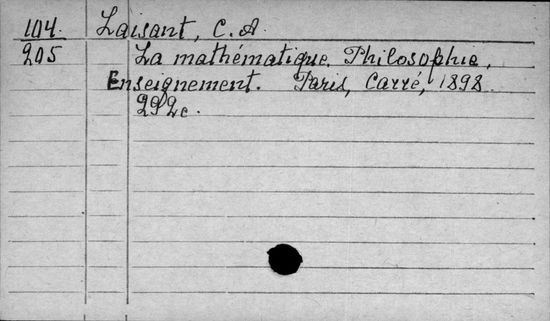 104. Laisant, C. A.
205 La mathématique. Philosophie,
Enseignement. Paris, Carré, 1898.
292c.